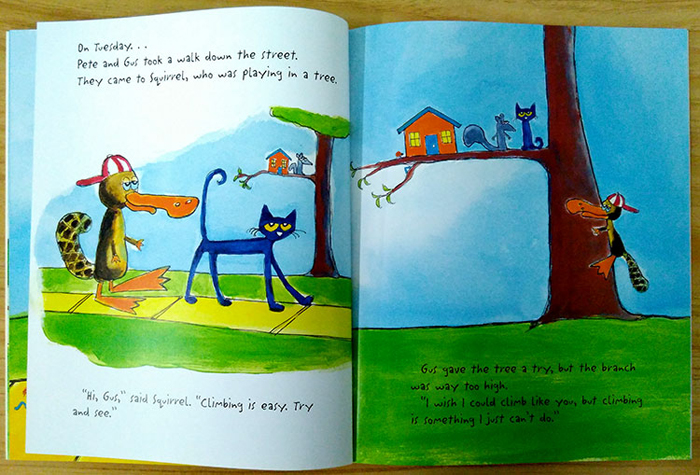 On Tuesday...
Pete and Gus took a walk down the street.
They came to Squirrel, who was playing in a tree.
"Hi, Gus," said Squirrel. "Climbing is easy. Try
and see."
Gus gave the tree a try, but the branch
was way too high.
"I wish I could climb like you, but climbing
is something I just can't do."